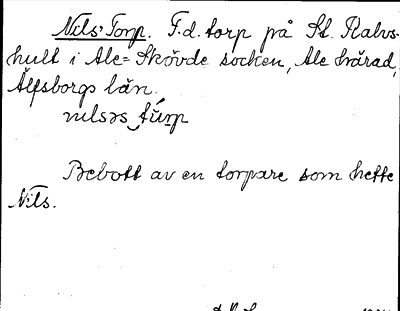 Nils' Torp. F.d. torp på St. Ralvs-
hult i Ale-Skövde socken, Ale härad,
Älfsborgs län.
nilsəs tùrp
Bebott av en torpare som hette
Nils.